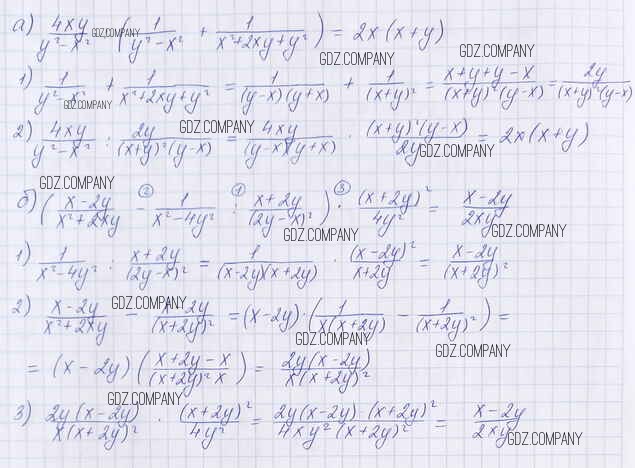 а) 4xy/(y²-x²) : (1/(y²-x²) + 1/(x²+2xy+y²)) = 2x(x+y)
GDZ.COMPANY
GDZ.COMPANY GDZ.COMPANY
1) 1/(y²-x²) + 1/(x²+2xy+y²) = 1/((y-x)(y+x)) + 1/(x+y)² = (x+y+y-x)/((x+y)²(y-x)) = 2y/((x+y)²(y-x))
GDZ.COMPANY
2) 4xy/(y²-x²) : 2y/((x+y)²(y-x)) = 4xy/((y-x)(y+x)) · ((x+y)²(y-x))/2y = 2x(x+y)
GDZ.COMPANY GDZ.COMPANY
GDZ.COMPANY
б) ((x-2y)/(x²+2xy) -② 1/(x²-4y²) :① (x+2y)/(2y-x)²) ·③ (x+2y)²/4y² = (x-2y)/2xy
GDZ.COMPANY GDZ.COMPANY
1) 1/(x²-4y²) : (x+2y)/(2y-x)² = 1/((x-2y)(x+2y)) · (x-2y)²/(x+2y) = (x-2y)/(x+2y)²
2) (x-2y)/(x²+2xy) - (x-2y)/(x+2y)² = (x-2y)·(1/(x(x+2y)) - 1/(x+2y)²) =
GDZ.COMPANY GDZ.COMPANY GDZ.COMPANY
= (x-2y)((x+2y-x)/((x+2y)²x)) = 2y(x-2y)/(x(x+2y)²)
GDZ.COMPANY
3) 2y(x-2y)/(x(x+2y)²) · (x+2y)²/4y² = (2y(x-2y)·(x+2y)²)/(4xy²(x+2y)²) = (x-2y)/2xy
GDZ.COMPANY